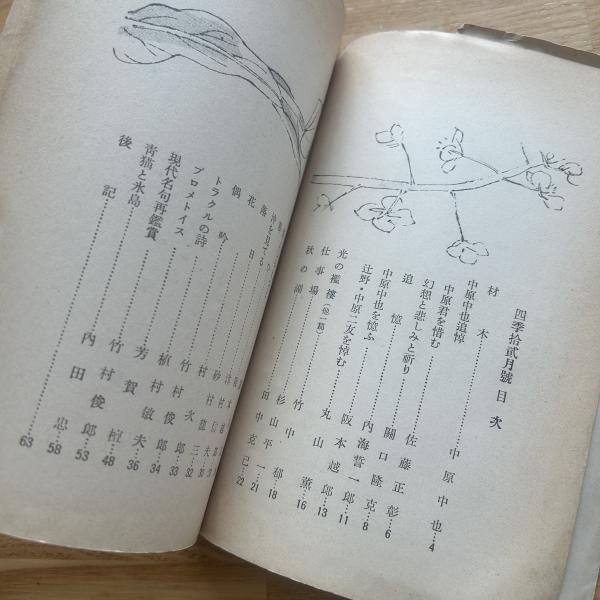 四季拾貳月號目次
材木……中原中也…4
中原中也追悼
中原君を惜む……佐藤正彰…6
幻想と悲しみと祈り……關口隆克…8
追憶……内海誓一郎…11
中原中也を憶ふ……阪本越郎…13
辻野・中原二友を悼む……丸山薫…16
光の襤褸(他一篇)……竹中郁…18
仕事場……杉山平一…21
秋の湖……田中克己…22
沖を見てる
偶吟……竹村俊郎…34
トラクルの詩……植村敏夫…36
プロメトイス……芳賀檀…48
現代名句再鑑賞……竹村俊郎…53
青猫と氷島……内田忠…58
後記……63